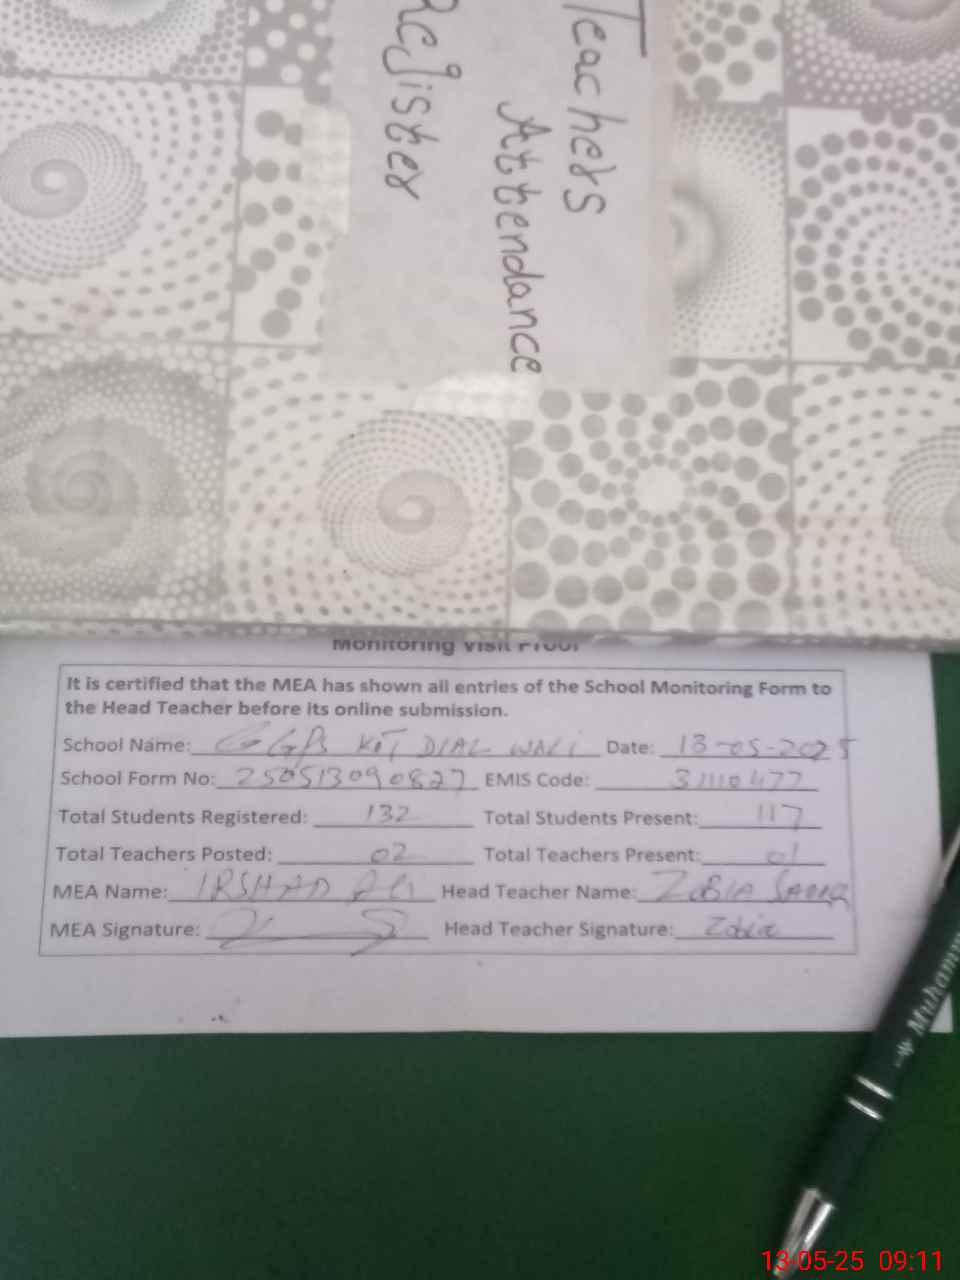 Teachers
Attendance
Register
Monitoring Visit Proof
It is certified that the MEA has shown all entries of the School Monitoring Form to
the Head Teacher before its online submission.
School Name: GGPS KOT DIAL WALI Date: 13-05-2025
School Form No: 250513090827 EMIS Code: 31110477
Total Students Registered: 132 Total Students Present: 117
Total Teachers Posted: 02 Total Teachers Present: 01
MEA Name: IRSHAD ALI Head Teacher Name: ZOBIA
MEA Signature: Head Teacher Signature: Zobia
Muhamm
13-05-25 09:11